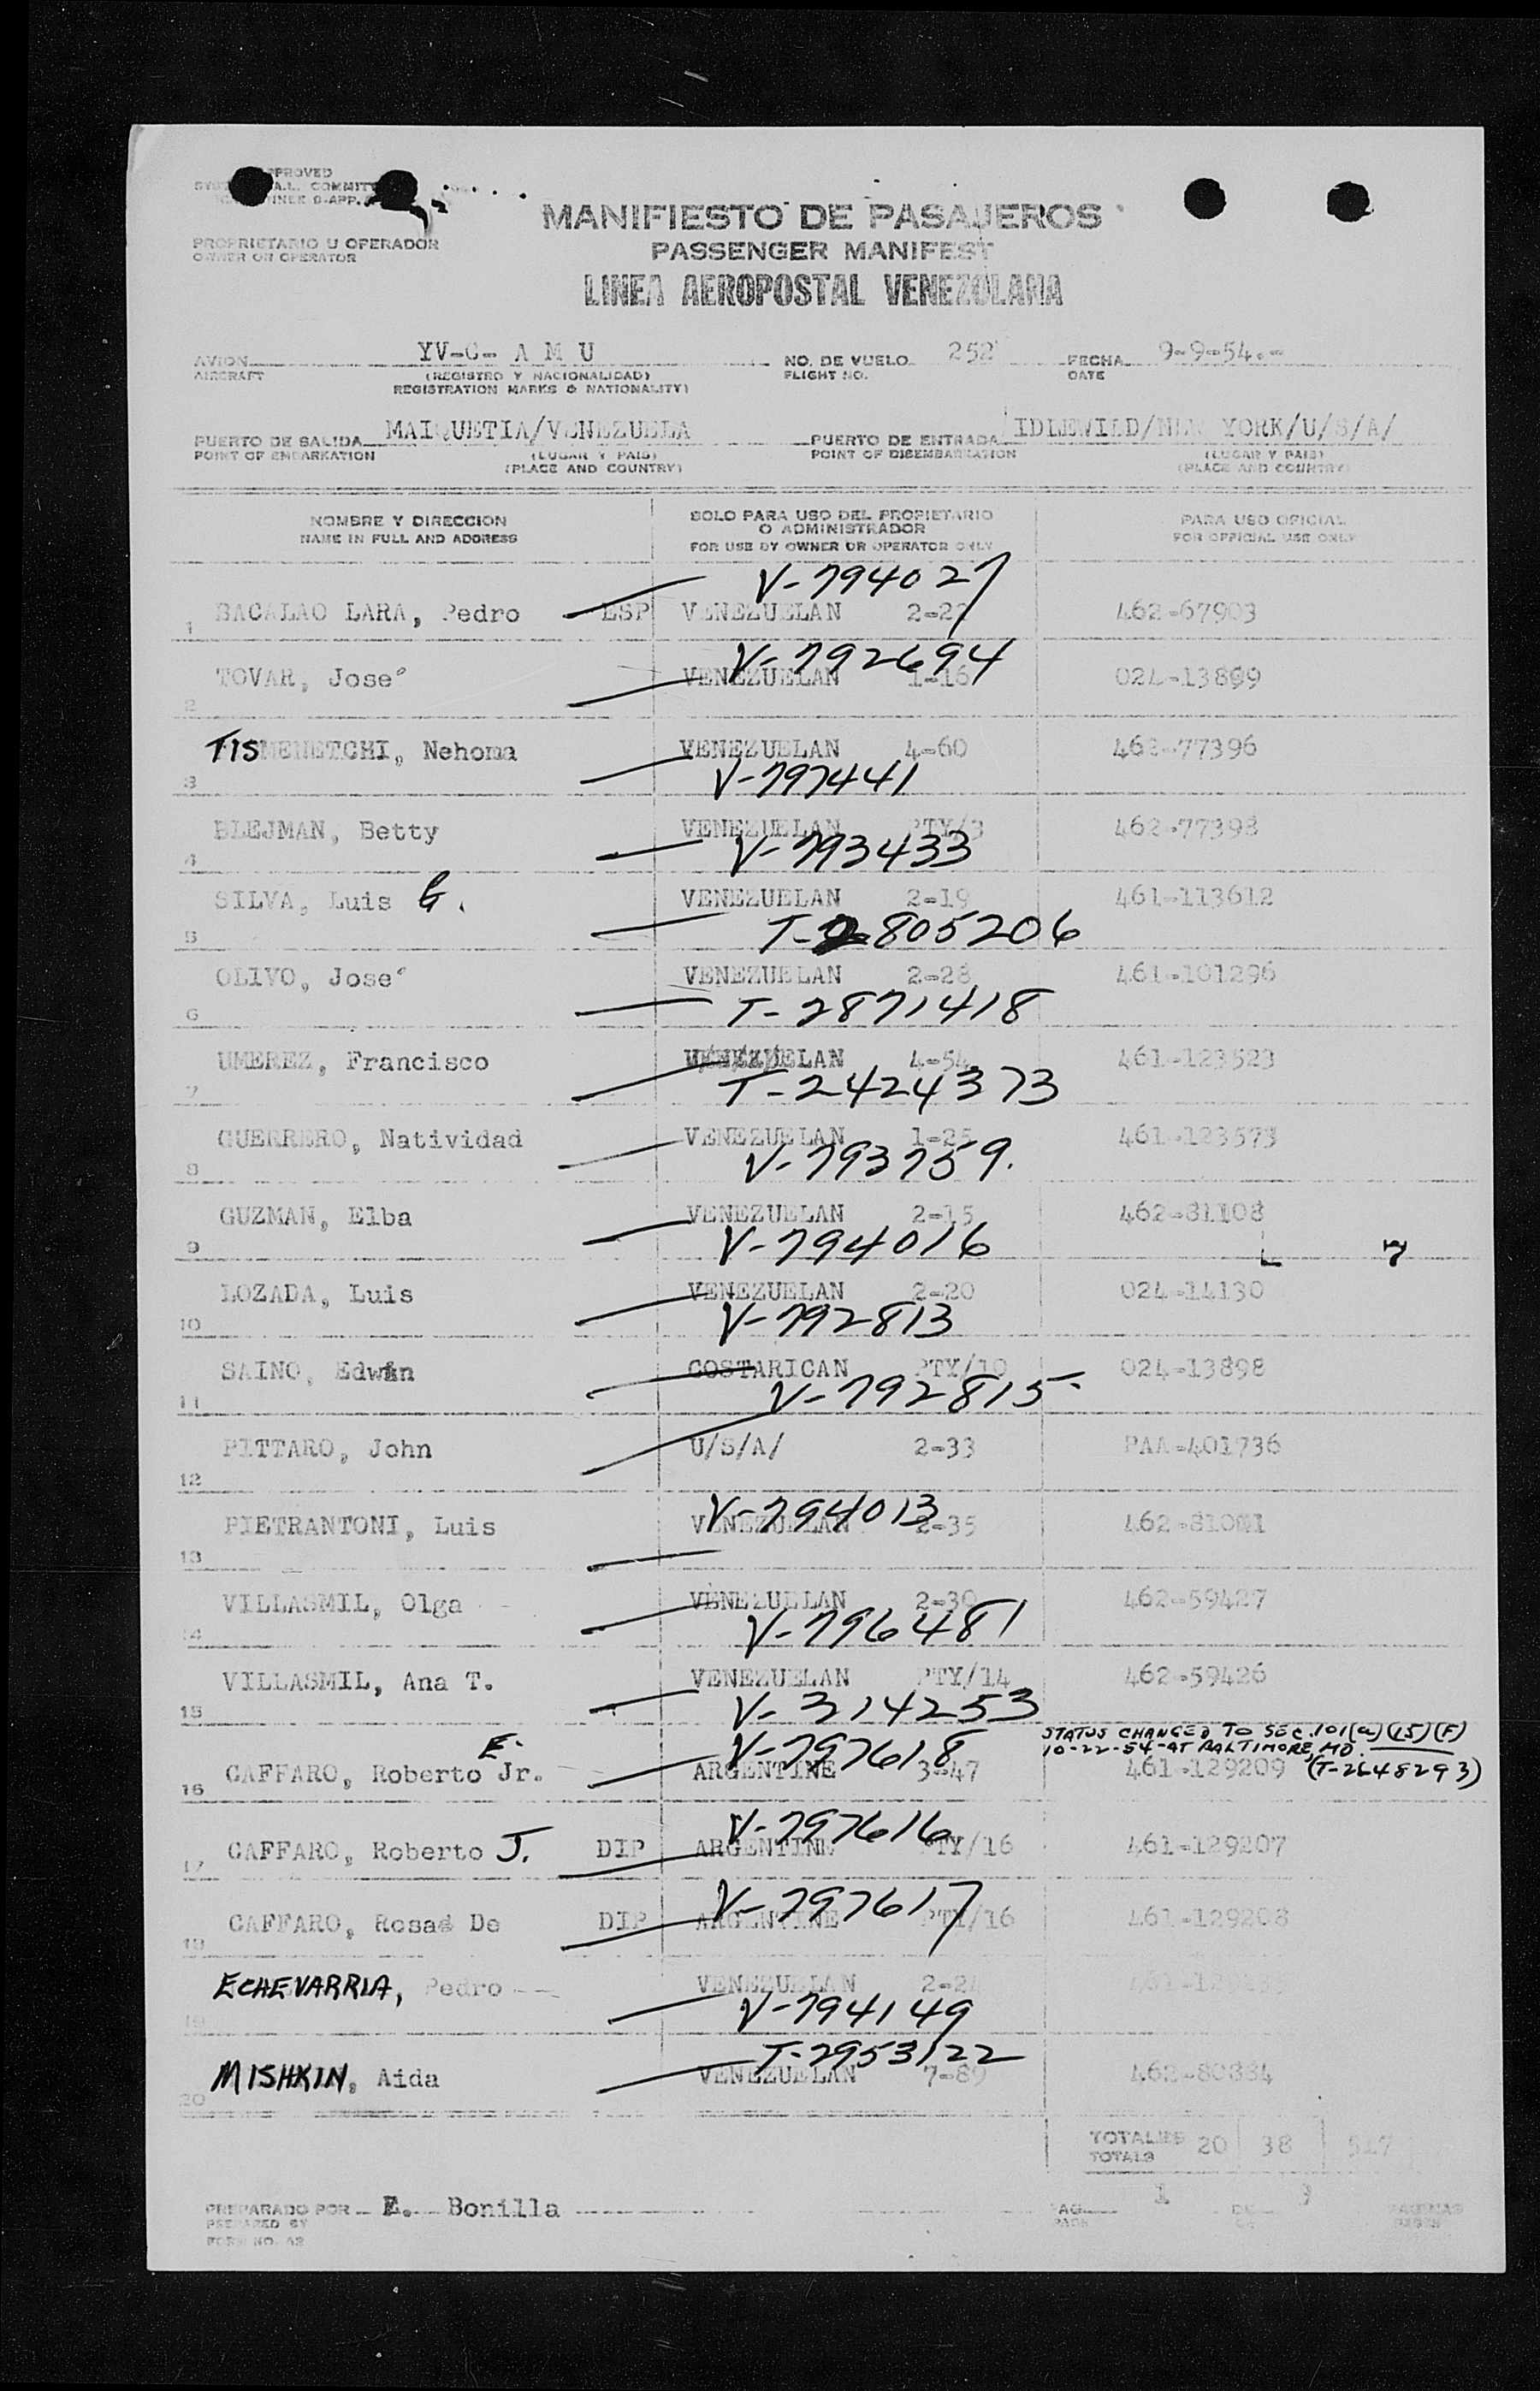 PROPRIETARIO U OPERADOR
OWNER OR OPERATOR
MANIFIESTO DE PASAJEROS
PASSENGER MANIFEST
LINEA AEROPOSTAL VENEZOLANA
AVION YV-C- A M U NO. DE VUELO 252 FECHA 9-9-54.-
AIRCRAFT (REGISTRO Y NACIONALIDAD) FLIGHT NO. DATE
REGISTRATION MARKS & NATIONALITY)
PUERTO DE SALIDA MAIQUETIA/VENEZUELA PUERTO DE ENTRADA IDLEWILD/NEW YORK/U/S/A/
POINT OF EMBARKATION (LUGAR Y PAIS) POINT OF DISEMBARKATION (LUGAR Y PAIS)
(PLACE AND COUNTRY) (PLACE AND COUNTRY)
NOMBRE Y DIRECCION SOLO PARA USO DEL PROPIETARIO O ADMINISTRADOR PARA USO OFICIAL
NAME IN FULL AND ADDRESS FOR USE BY OWNER OR OPERATOR ONLY FOR OFFICIAL USE ONLY
V-794027
1 BACALAO LARA, Pedro ESP VENEZUELAN 2-22 462-67903
V-792694
2 TOVAR, Jose VENEZUELAN 1-16 024-13899
3 TISMENETCHI, Nehoma VENEZUELAN 4-60 462-77396
V-797441
4 BLEJMAN, Betty VENEZUELAN PTY/3 462-77398
V-793433
5 SILVA, Luis G. VENEZUELAN 2-19 461-113612
T-2805206
6 OLIVO, Jose VENEZUELAN 2-28 461-101296
T-2871418
7 UMEREZ, Francisco VENEZUELAN 4-54 461-123523
T-2424373
8 GUERRERO, Natividad VENEZUELAN 1-25 461-123573
V-793759.
9 GUZMAN, Elba VENEZUELAN 2-15 462-81108
V-794016
10 LOZADA, Luis VENEZUELAN 2-20 024-14130
V-792813
11 SAINO, Edwin COSTARICAN PTY/10 024-13898
V-792815
12 PITTARO, John U/S/A/ 2-33 PAA-401736
V-794013
13 PIETRANTONI, Luis VENEZUELAN 2-35
14 VILLASMIL, Olga VENEZUELAN 2-30 462-59427
V-796481
15 VILLASMIL, Ana T. VENEZUELAN PTY/14 462-59426
V-314253
STATUS CHANGED TO SEC. 101(a)(15)(F)
V-797618 10-22-54 AT BALTIMORE, MD.
16 CAFFARO, Roberto E. Jr. ARGENTINE 3-47 461-129209 (T-2648293)
V-797616
17 CAFFARO, Roberto J. DIP ARGENTINE PTY/16 461-129207
V-797617
18 CAFFARO, Rosa De DIP ARGENTINE PTY/16 461-129208
19 ECHEVARRIA, Pedro VENEZUELAN
V-794149
T-2953122
20 MISHKIN, Aida VENEZUELAN 7-89 462-80884
TOTALES 20 38 517
TOTALS
PREPARADO POR E. Bonilla PAG. 1 DE PAGINAS
PREPARED BY PAGE PAGES
FORM NO. 42